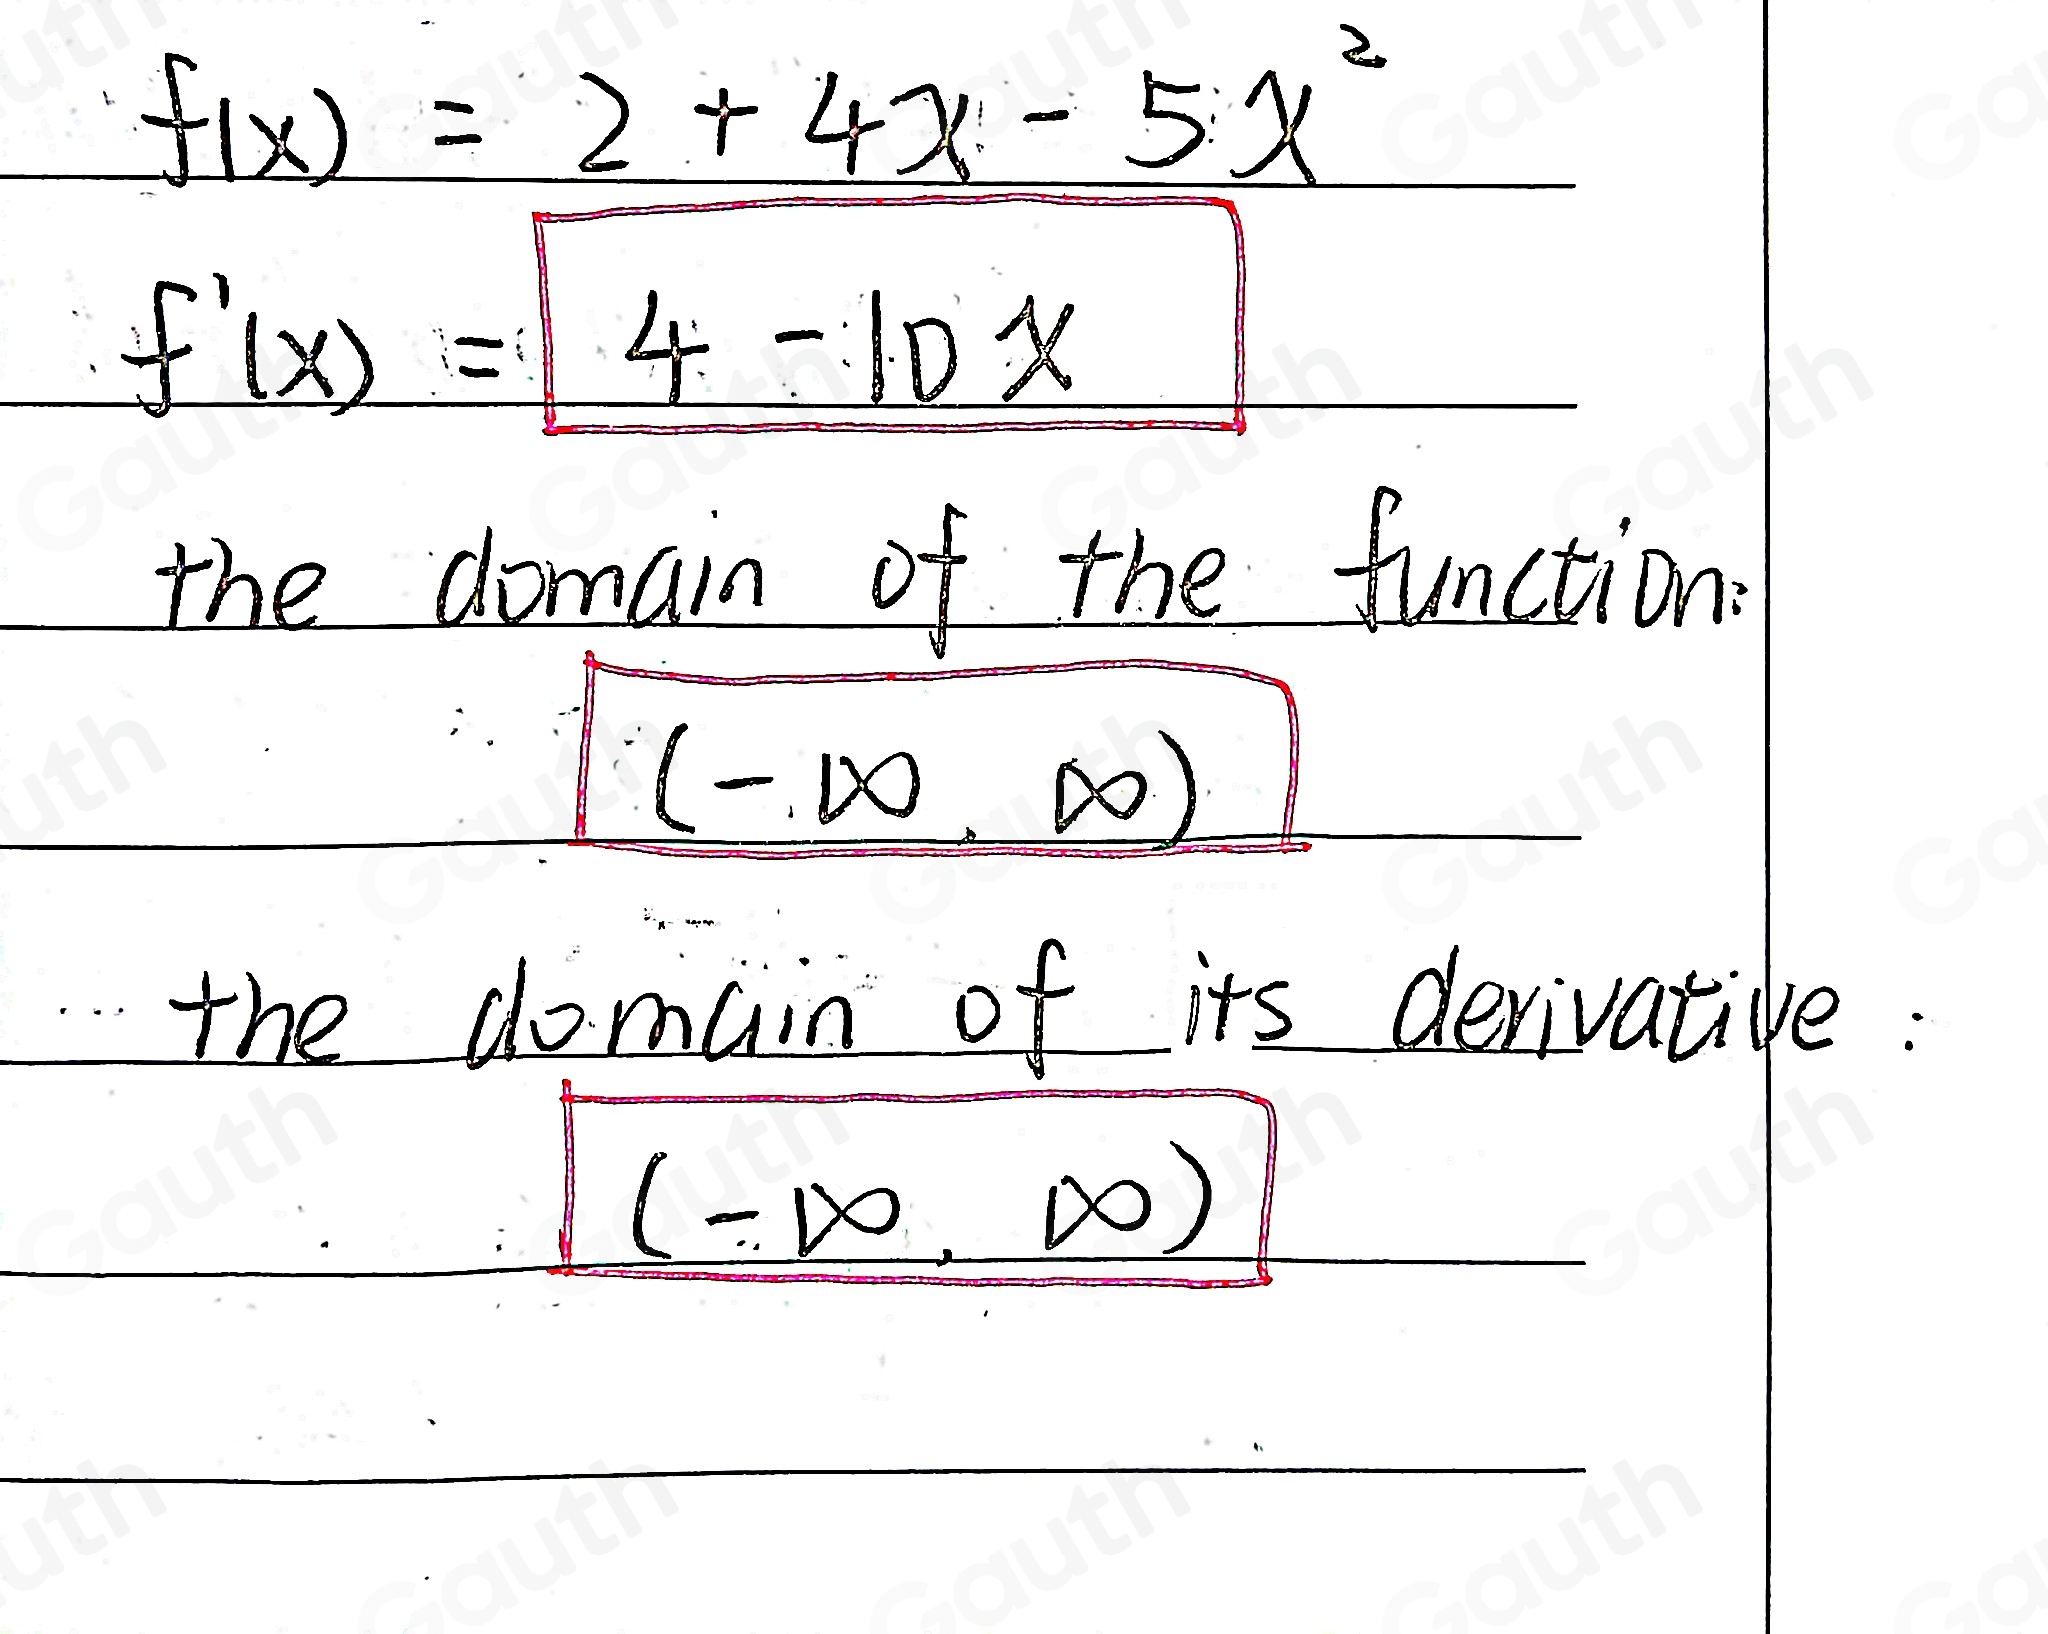 f(x) = 2 + 4x - 5x²
f'(x) = 4 - 10x
the domain of the function:
(-∞, ∞)
the domain of its derivative:
(-∞, ∞)